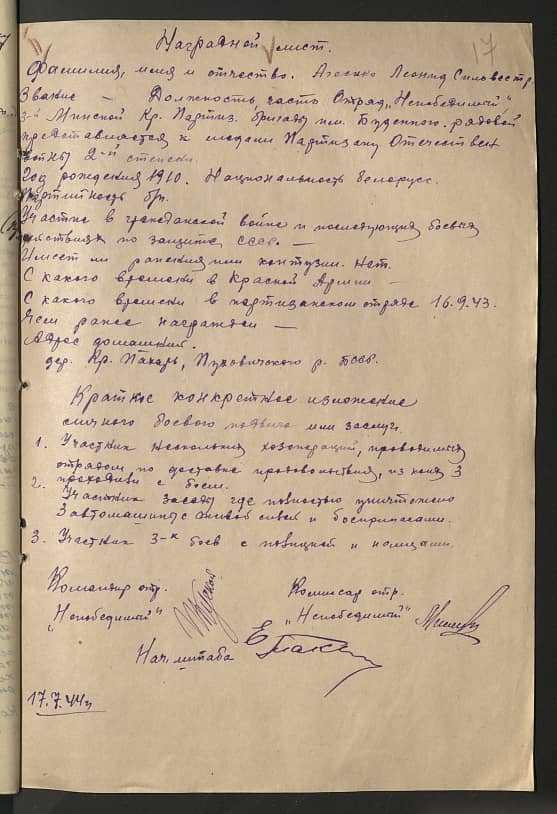 17
Наградной лист.
Фамилия, имя и отчество. Леонид Сильвестр.
Звание — Должность, часть Отряд „Непобедимый"
3й Минской Кр. Партиз. бригады им. Буденного. рядовой
представляется к медали Партизану Отечествен
войны 2-й степени.
Год рождения 1910. Национальность белорусс.
Партийность б/п.
Участие в гражданской войне и последующих боевых
действиях по защите СССР. —
Имеет ли ранения или контузии. Нет.
С какого времени в Красной Армии —
С какого времени в партизанском отряде 16.9.43.
Чем ранее награжден —
Адрес домашний.
дер. Кр. Пахарь, Пуховичского р. БССР.
Краткое конкретное изложение
личного боевого подвига или заслуг.
1. Участник нескольких хозопераций, проводимых
отрядом, по доставке продовольствия, из коих 3
проходили с боем.
2. Участник засады где полностью уничтожено
3 автомашины с живой силой и боеприпасами.
3. Участник 3-х боев с полицией и немцами.
Командир отр.
„Непобедимый"
Комиссар отр.
„Непобедимый"
Нач. штаба
17.7.44г